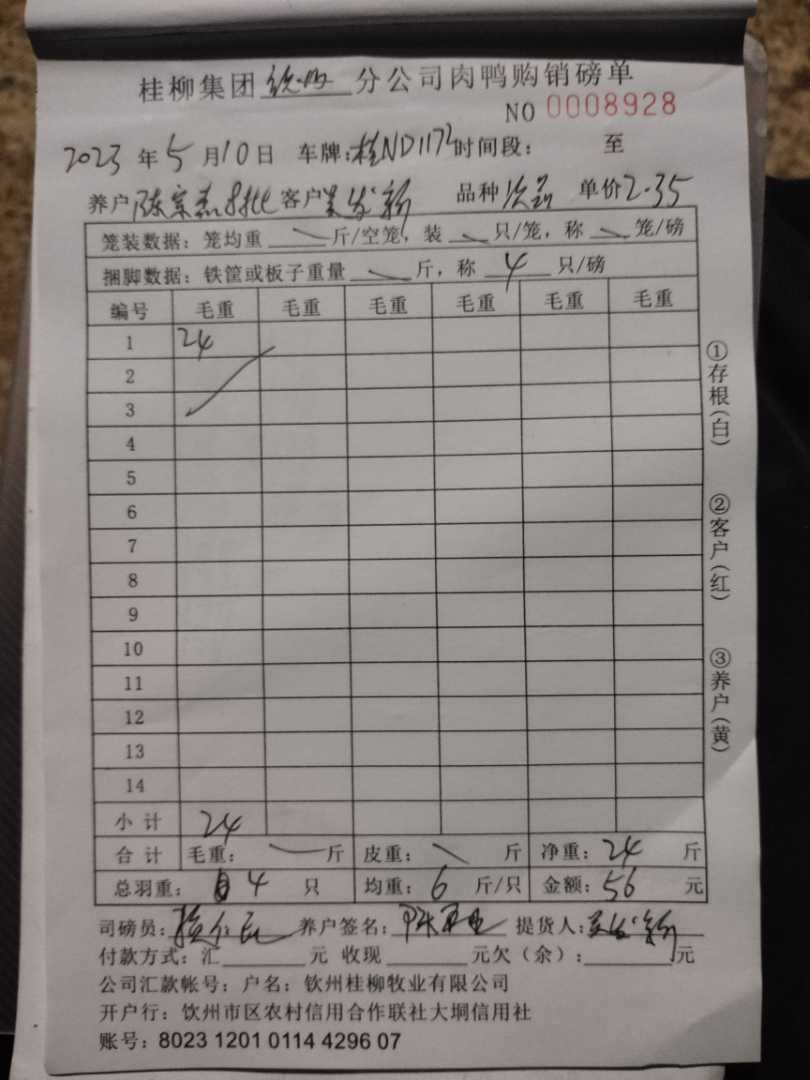 桂柳集团 钦州 分公司肉鸭购销磅单
NO 0008928
2023 年 5 月 10 日 车牌:桂ND1172 时间段: 至
养户 陈宗 批 客户 吴发新 品种 次品 单价 2.35
笼装数据: 笼均重 斤/空笼, 装 只/笼, 称 笼/磅
捆脚数据: 铁筐或板子重量 斤, 称 4 只/磅
编号 毛重 毛重 毛重 毛重 毛重 毛重
1 24
2
3
4
5
6
7
8
9
10
11
12
13
14
小 计 24
合 计 毛重: 斤 皮重: 斤 净重: 24 斤
总羽重: 4 只 均重: 6 斤/只 金额: 56 元
司磅员: 养户签名: 提货人: 吴发新
付款方式: 汇 元 收现 元欠(余): 元
公司汇款帐号: 户名: 钦州桂柳牧业有限公司
开户行: 钦州市区农村信用合作联社大垌信用社
账号: 8023 1201 0114 4296 07
①存根(白)
②客户(红)
③养户(黄)